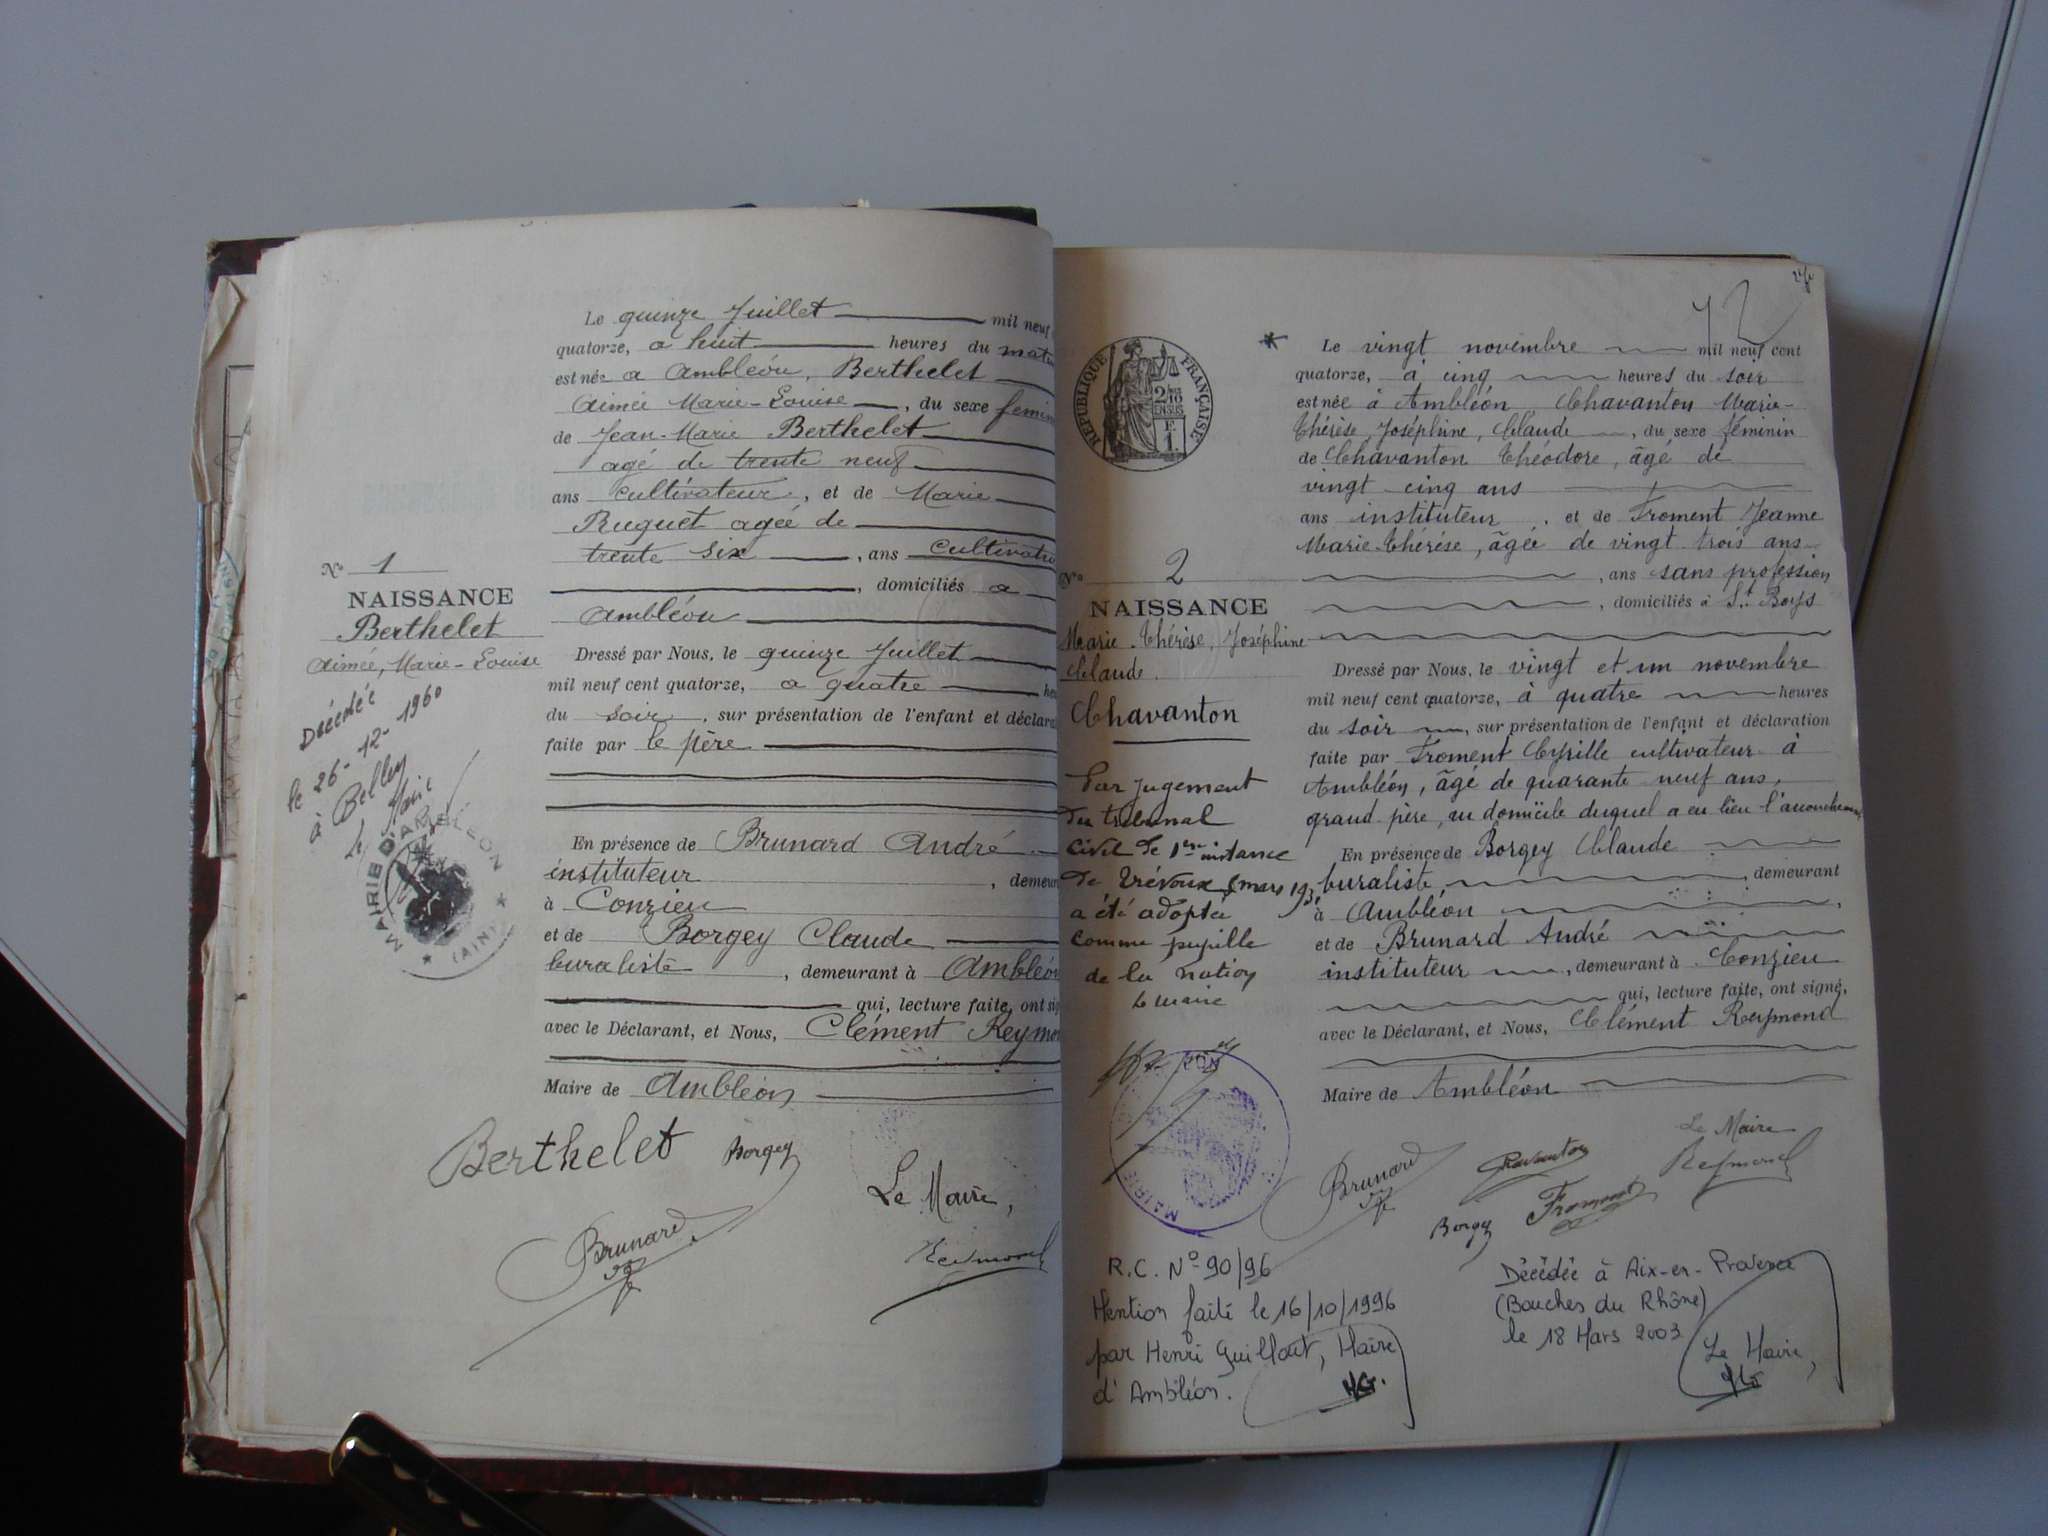 Le quinze Juillet mil neuf
quatorze, a huit heures du
est née a Ambléon, Berthelet
Aimée Marie-Louise, du sexe
de Jean-Marie Berthelet
agé de trente neuf
ans cultivateur, et de Marie
Ruguet agée de
trente six, ans
domiciliés a
Ambléon
No 1
NAISSANCE
Berthelet
Aimée, Marie-Louise
Décédée
le 26-12-1960
à Belley
Le Maire
MAIRIE D'AMBLÉON
(AIN)
Dressé par Nous, le quinze Juillet
mil neuf cent quatorze, a quatre
du soir, sur présentation de l'enfant et
faite par le père
En présence de Brunard André
instituteur
à Conzieu
et de Borgey Claude
buraliste, demeurant à Ambléon
qui, lecture faite, ont
avec le Déclarant, et Nous, Clément
Maire de Ambléon
Berthelet Borgey
Le Maire,
Brunard
Reymond
RÉPUBLIQUE FRANÇAISE
*
Le vingt novembre mil neuf cent
quatorze, à cinq heures du soir
est née à Ambléon, Chavanton Marie-
Thérèse, Joséphine, Claude, du sexe féminin
de Chavanton Théodore, âgé de
vingt cinq ans
ans instituteur, et de Froment Jeanne
Marie-Thérèse, âgée de vingt trois ans
, ans sans profession
, domiciliés à St Boys
No 2
NAISSANCE
Marie-Thérèse, Joséphine
Claude.
Chavanton
Par jugement
du tribunal
civil de 1ère instance
de Trévoux mars
a été adoptée
comme pupille
de la nation
Le maire
MAIRIE
Dressé par Nous, le vingt et un novembre
mil neuf cent quatorze, à quatre heures
du soir, sur présentation de l'enfant et déclaration
faite par Froment Cyrille cultivateur à
Ambléon, âgé de quarante neuf ans,
grand-père, au domicile duquel a eu lieu l'accouchement
En présence de Borgey Claude
buraliste, demeurant
à Ambléon,
et de Brunard André
instituteur, demeurant à Conzieu
qui, lecture faite, ont signé,
avec le Déclarant, et Nous, Clément Reymond
Maire de Ambléon
Le Maire
Brunard Chavanton Reymond
Borgey Froment
R.C. No 90/96
Mention faite le 16/10/1996
par Henri Guillout, Maire
d'Ambléon.
HG.
Décédée à Aix-en-Provence
(Bouches du Rhône)
le 18 Mars 2003
Le Maire,